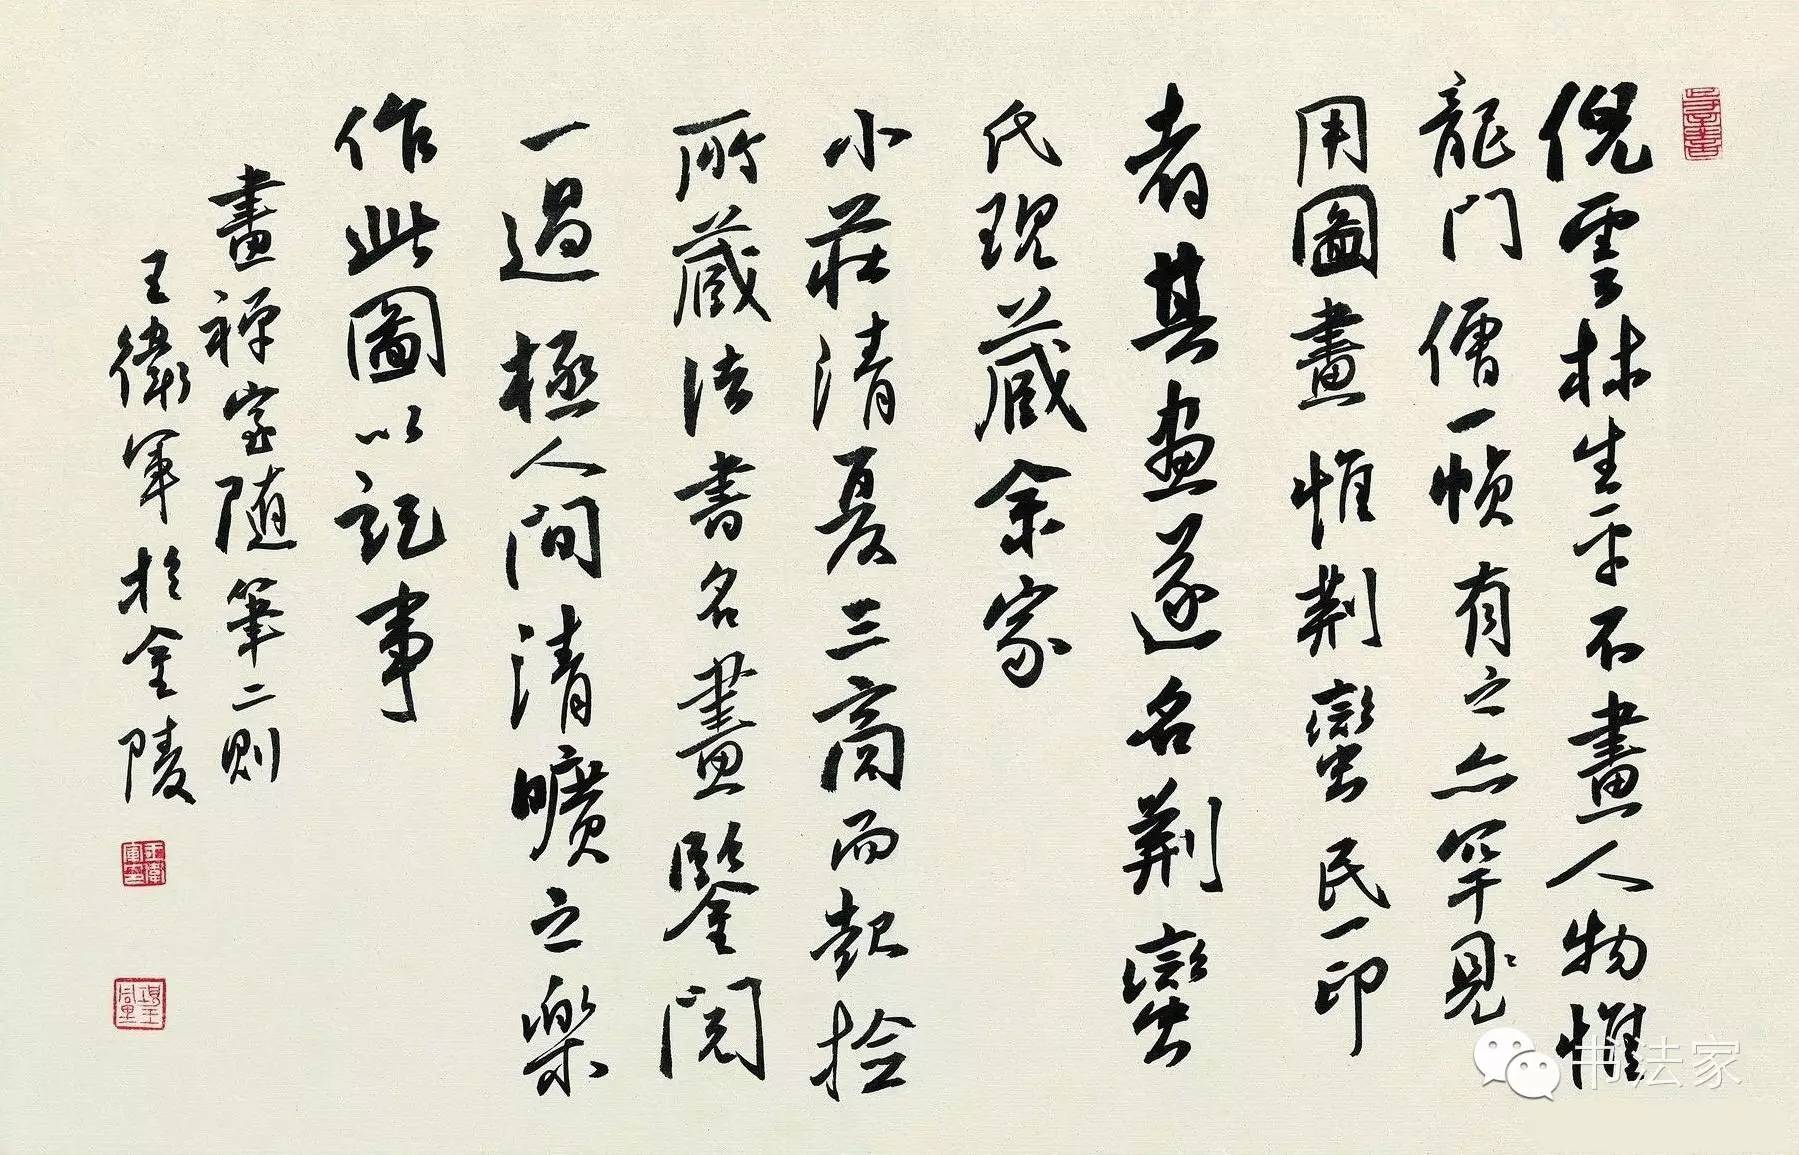 倪雲林生平不畫人物惟
龍門僧一幀有之亦罕見
用圖畫惟荆蠻民一印
者其畫遂名荆蠻
民現藏余家
小莊清夏三商而起撿
所藏法書名畫鑒閱
一過極人間清曠之樂
作此圖以記事
畫禪室隨筆二則
王衛軍於金陵
王衛軍印
书法家